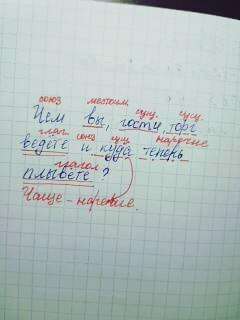 союз местоим. сущ. сущ.
Чем вы, гости, торг
глаг. союз сущ. наречие
ведёте и куда теперь
глагол
плывёте?
Чаще - наречие